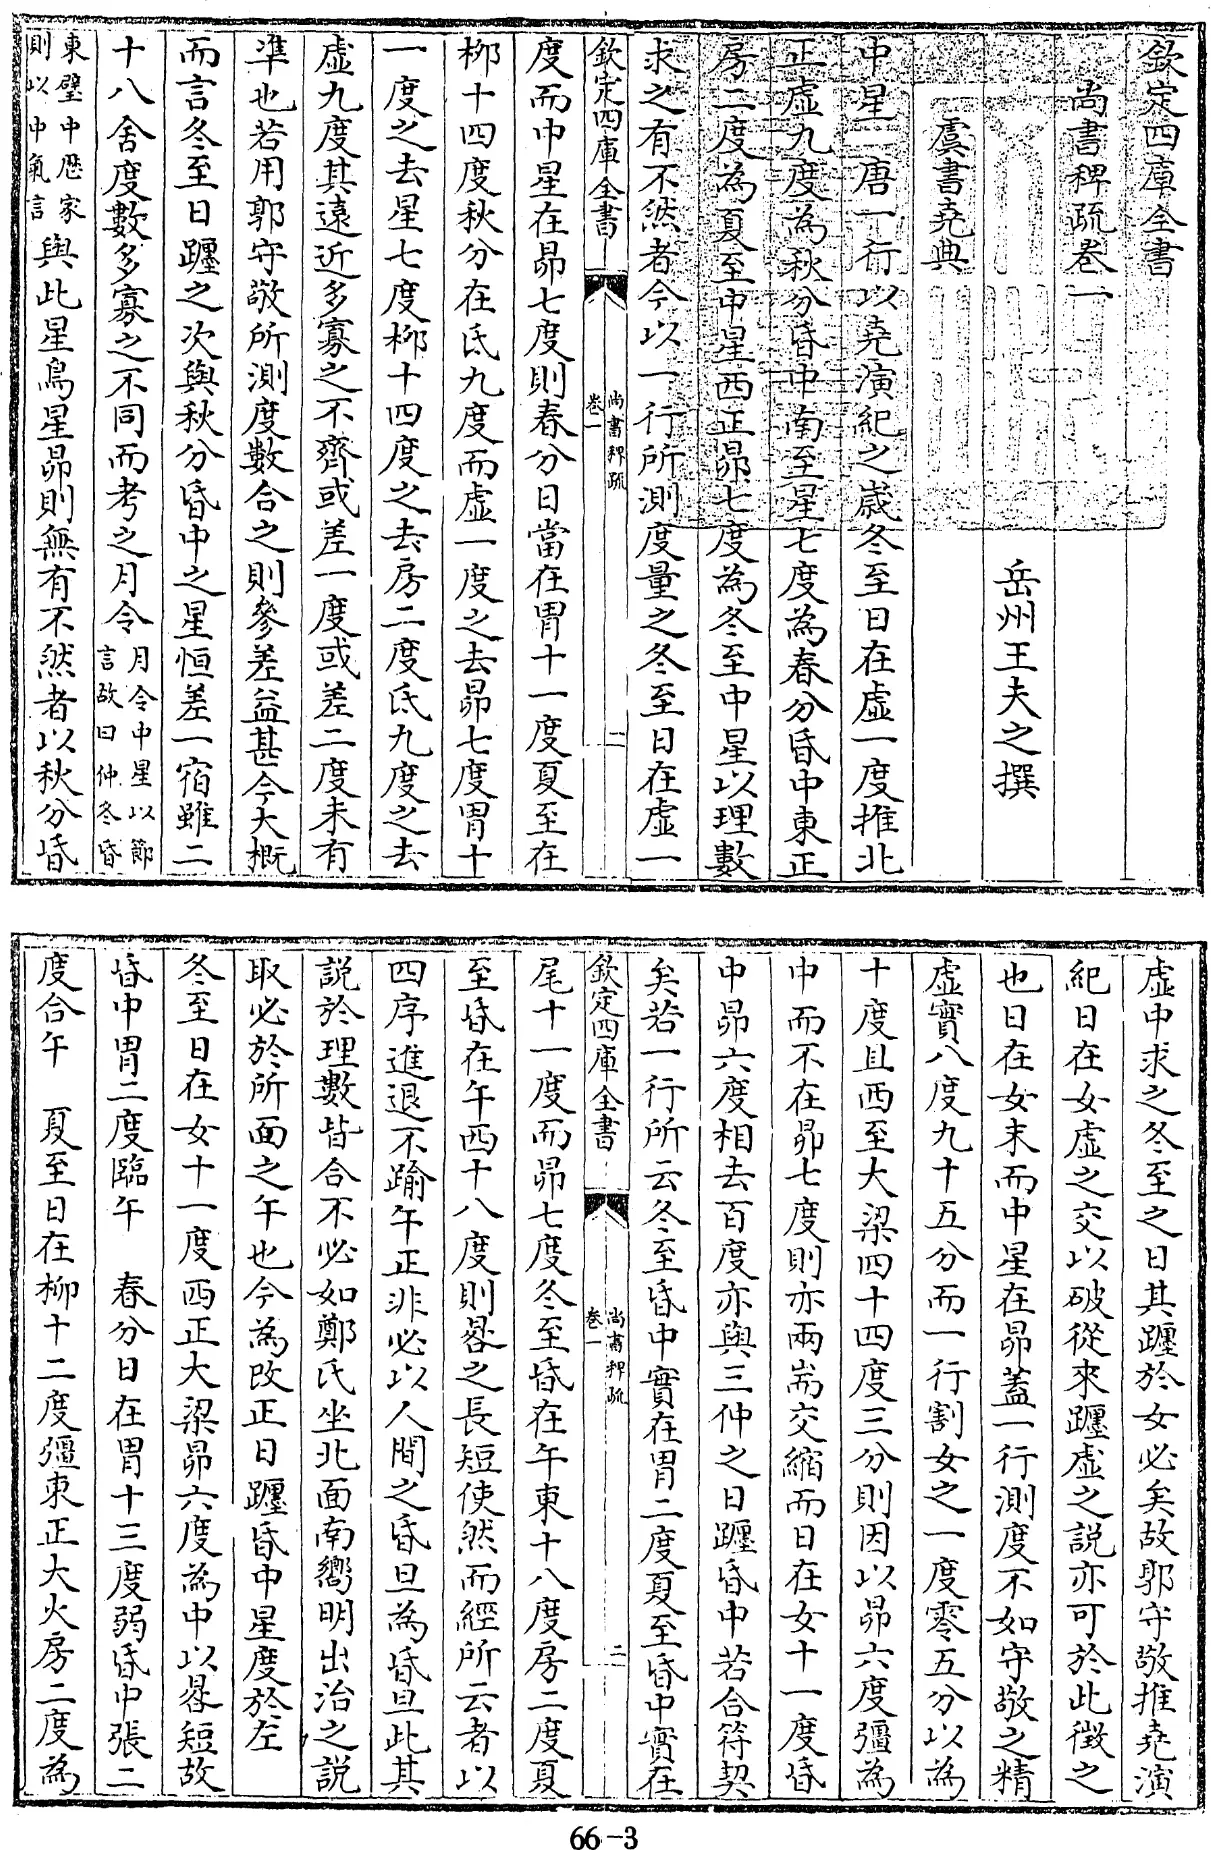 欽定四庫全書
尚書稗疏卷一
岳州王夫之撰
虞書堯典
中星 唐一行以堯演紀之歲冬至日在虛一度推北
正虛九度為秋分昏中南至星七度為春分昏中東正
房二度為夏至中星西正昴七度為冬至中星以理數
求之有不然者今以一行所測度量之冬至日在虛一
欽定四庫全書
尚書稗疏
卷一
一
度而中星在昴七度則春分日當在胃十一度夏至在
柳十四度秋分在氐九度而虛一度之去昴七度胃十
一度之去星七度柳十四度之去房二度氐九度之去
虛九度其遠近多寡之不齊或差一度或差二度未有
準也若用郭守敬所測度數合之則參差益甚今大槪
而言冬至日躔之次與秋分昏中之星恒差一宿雖二
十八舍度數多寡之不同而考之月令月令中星以節言故曰仲冬昏
東壁中歴家則以中氣言與此星鳥星昴則無有不然者以秋分昏
虛中求之冬至之日其躔於女必矣故郭守敬推堯演
紀日在女虛之交以破從來躔虛之說亦可於此徵之
也日在女末而中星在昴蓋一行測度不如守敬之精
虛實八度九十五分而一行割女之一度零五分以為
十度且酉至大梁四十四度三分則因以昴六度彊為
中而不在昴七度則亦兩耑交縮而日在女十一度昏
中昴六度相去百度亦與三仲之日躔昏中若合符契
矣若一行所云冬至昏中實在胃二度夏至昏中實在
欽定四庫全書
尚書稗疏
卷一
二
尾十一度而昴七度冬至昏在午東十八度房二度夏
至昏在午西十八度則晷之長短使然而經所云者以
四序進退不踰午正非必以人間之昏旦為昏旦此其
說於理數皆合不必如鄭氏坐北面南嚮明出治之說
取必於所面之午也今為改正日躔昏中星度於左
冬至日在女十一度酉正大梁昴六度為中以晷短故
昏中胃二度臨午 春分日在胃十三度弱昏中張二
度合午 夏至日在柳十二度彊東正大火房二度為
66-3